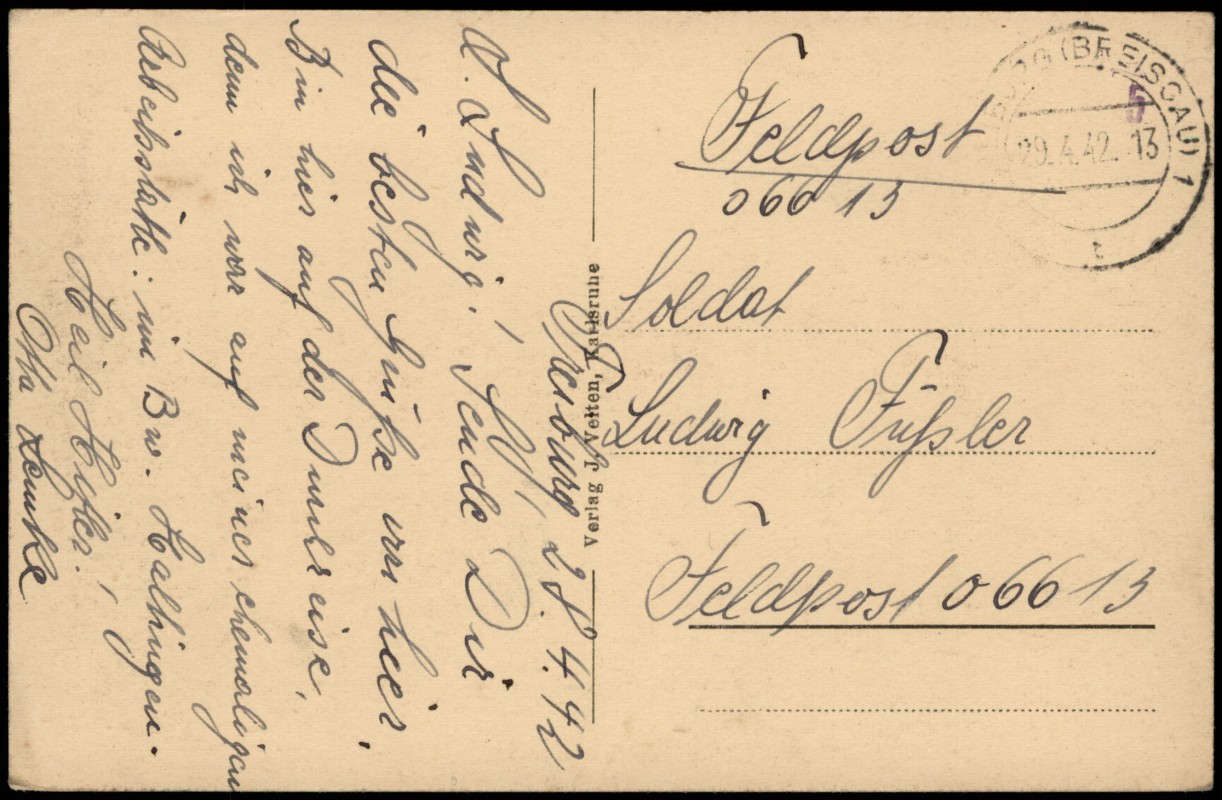 Freiburg 28.4.42
L. Ludwig! Sende Dir
die besten Grüße von hier.
Bin hier auf der Durchreise,
denn ich war auf meiner ehemaligen
Arbeitsstätte: im Bw. Haltingen.
Heil Hitler!
Otto Lemke
Verlag J. Velten, Karlsruhe
(BREISGAU) 1
29.4.42. 13
5
Feldpost
06613
Soldat
Ludwig Füßler
Feldpost 06613